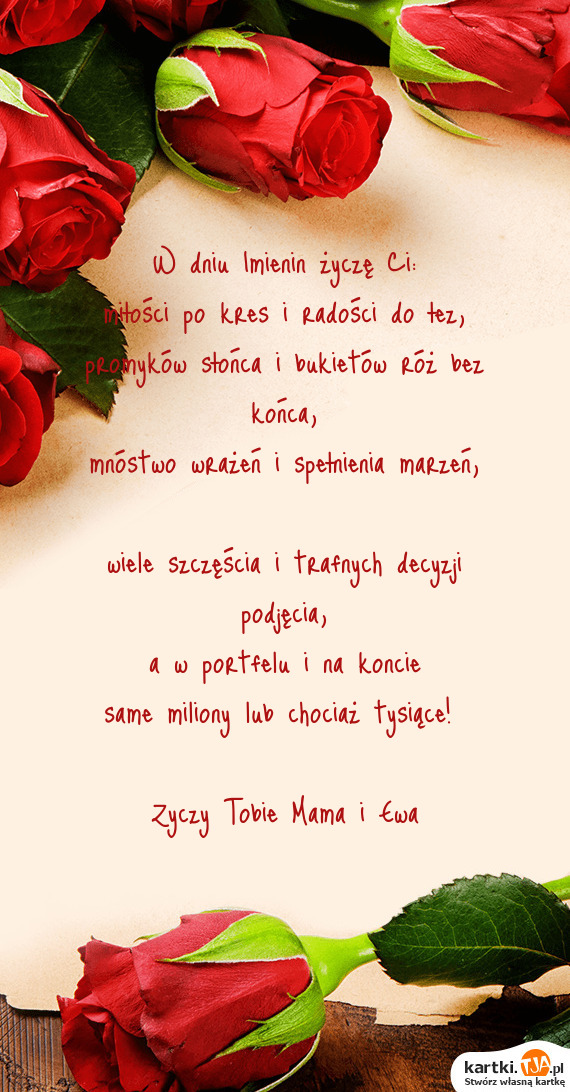 W dniu Imienin życzę Ci:
miłości po kres i radości do łez,
promyków słońca i bukietów róż bez
końca,
mnóstwo wrażeń i spełnienia marzeń,
wiele szczęścia i trafnych decyzji
podjęcia,
a w portfelu i na koncie
same miliony lub chociaż tysiące!
Zyczy Tobie Mama i Ewa
kartki.TJA.pl
Stwórz własną kartkę